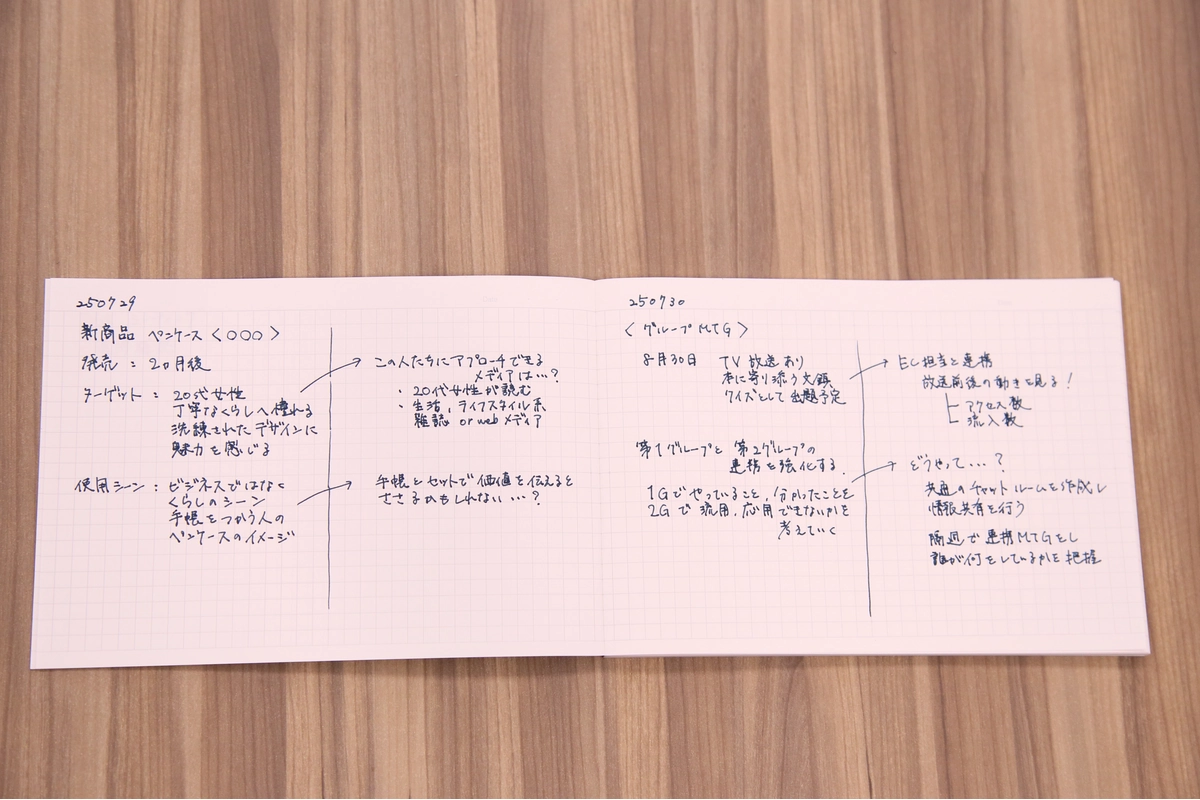 250729
新商品 ペンケース〈○○○〉
発売：2ヵ月後
ターゲット：20代女性
丁寧なくらしへ憧れる
洗練されたデザインに
魅力を感じる
使用シーン：ビジネスではなく
くらしのシーン
手帳をつかう人の
ペンケースのイメージ
この人たちにアプローチできる
メディアは…？
・20代女性が読む
・生活、ライフスタイル系
雑誌 or web メディア
手帳とセットで価値を伝えると
ささるかもしれない…？
250730
〈グループMTG〉
8月30日 TV放送あり
本に寄り添う文鎮
クイズとして出題予定
第1グループと第2グループの
連携を強化する.
1Gでやっていること、分かったことを
2Gで流用、応用できないかを
考えていく
EC担当と連携
放送前後の動きを見る！
アクセス数
流入数
どうやって…？
共通のチャットルームを作成し
情報共有を行う
隔週で連携MTGをし
誰が何をしているかを把握